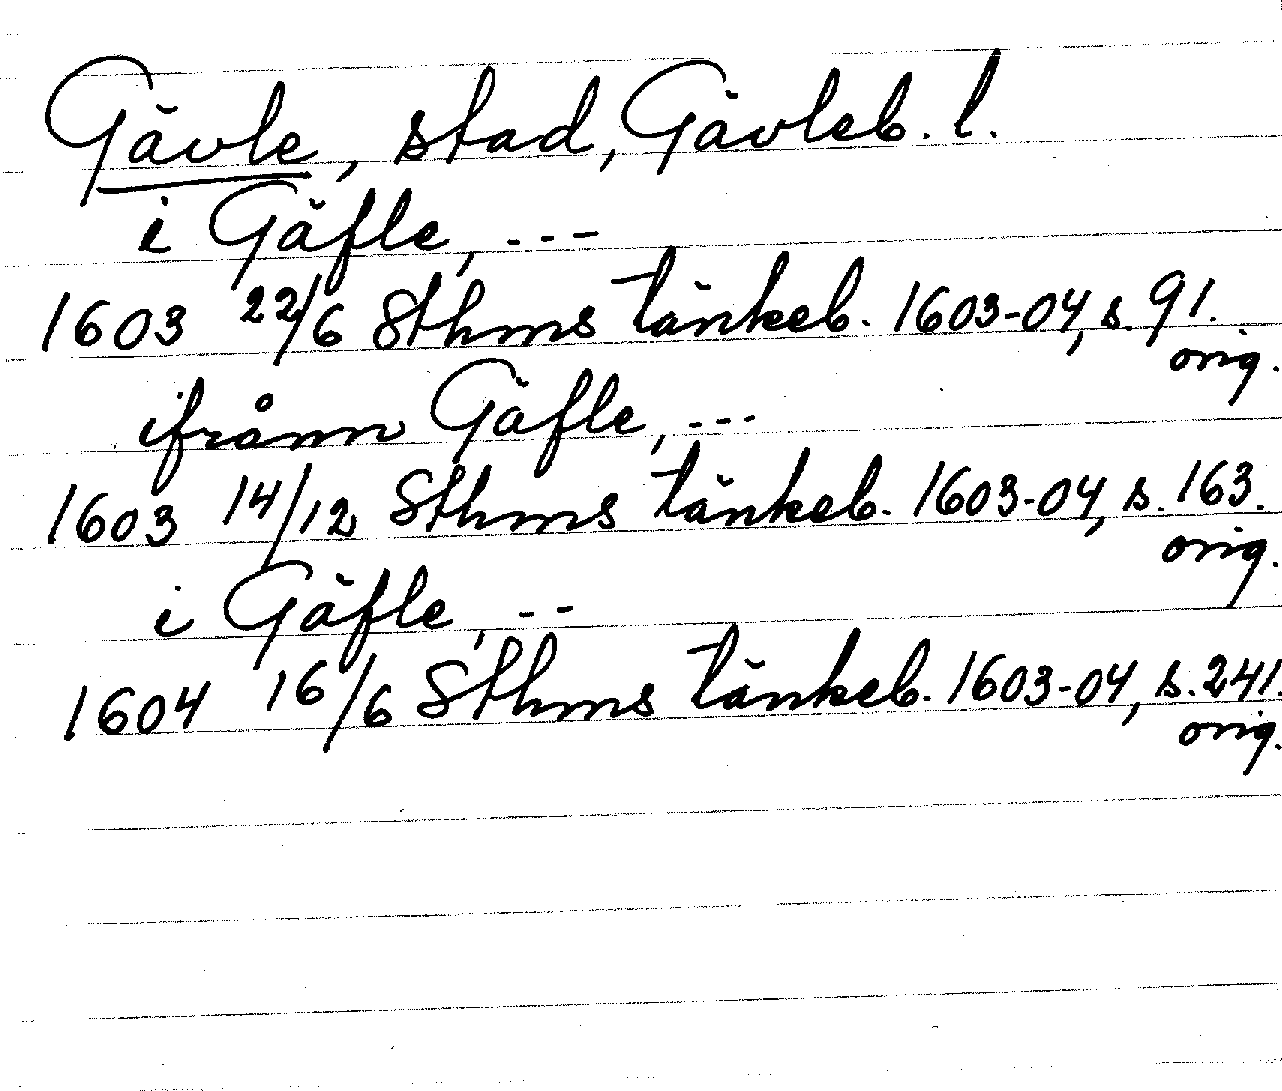 Gävle, stad, Gävleb. l.
i Gäfle, ---
1603 22/6 Sthms tänkeb. 1603-04, s. 91.
orig.
ifrånn Gäfle, ---
1603 14/12 Sthms tänkeb. 1603-04, s. 163.
orig.
i Gäfle, --
1604 16/6 Sthms tänkeb. 1603-04, s. 241.
orig.